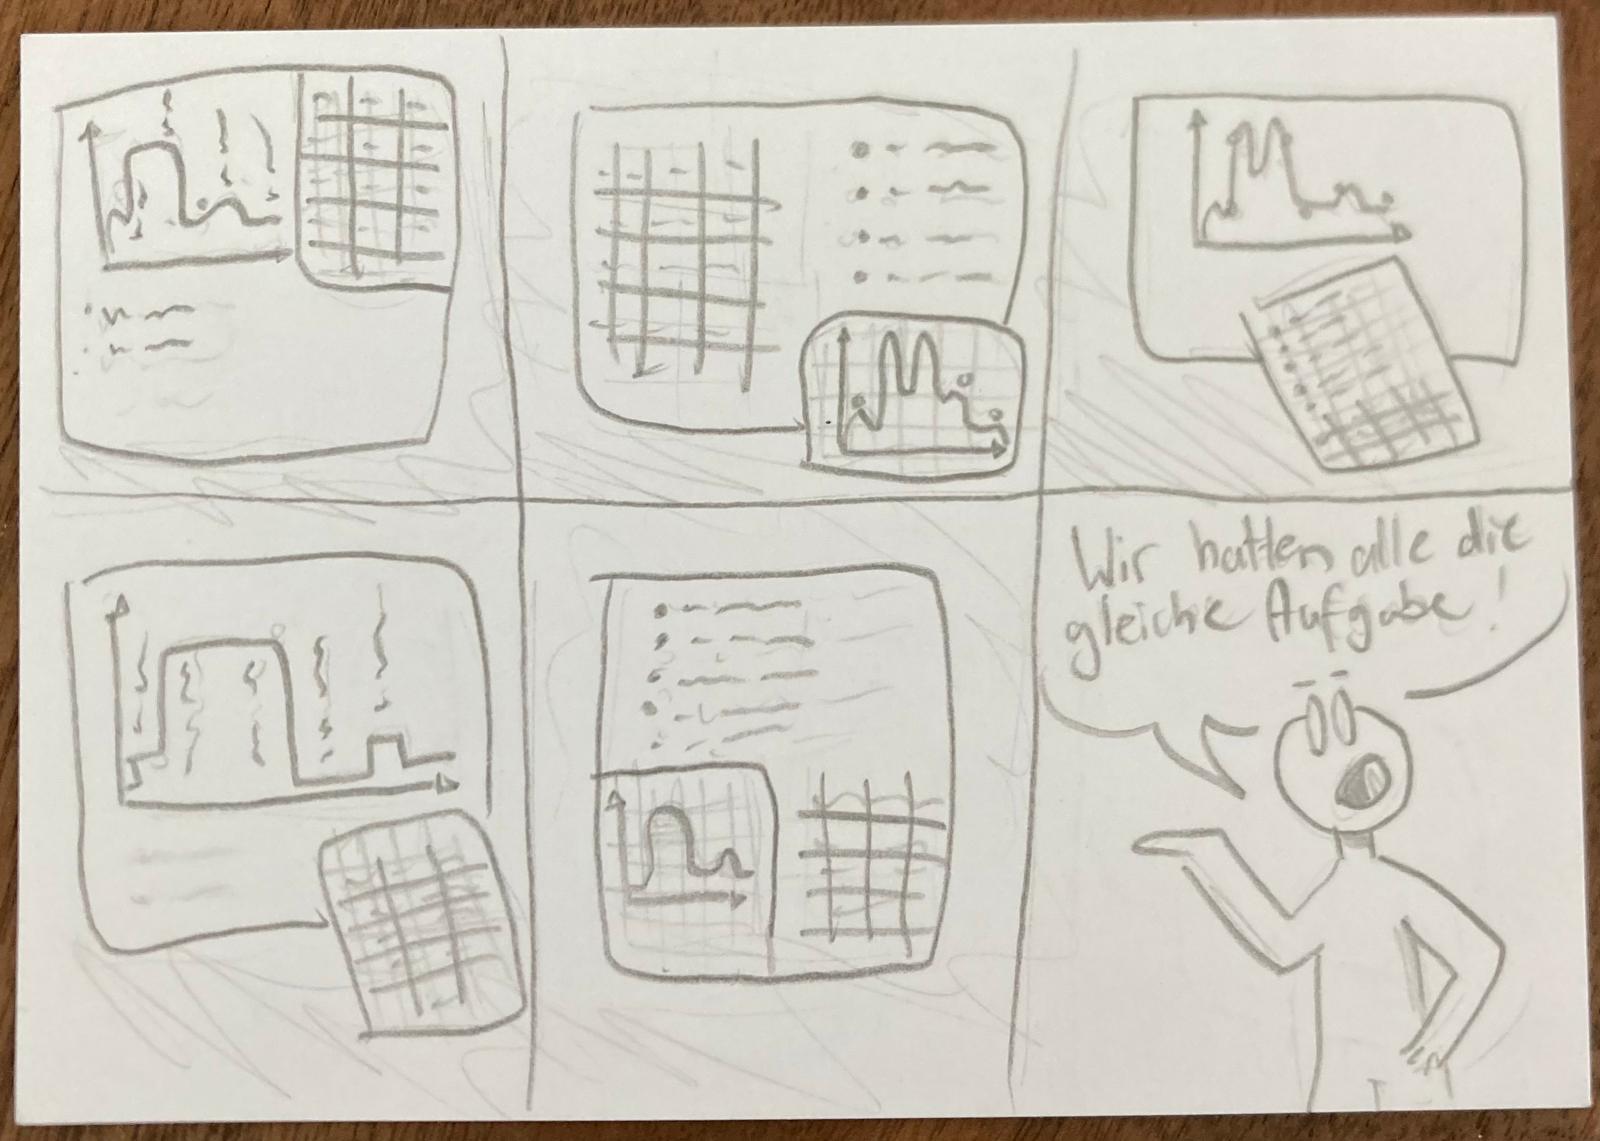 Wir hatten alle die
gleiche Aufgabe!